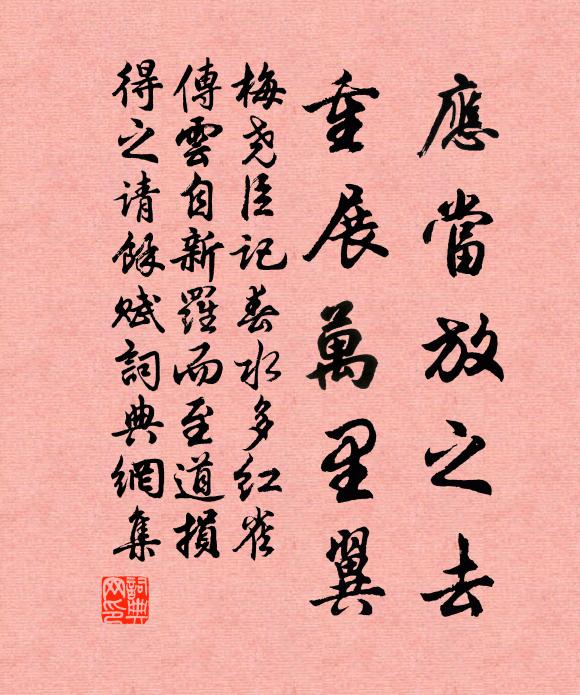 應當放之去
重展萬里翼
梅尧臣記春水多紅雀
傳雲自新羅而至道損
得之請餘賦詞典網集
詞典网印